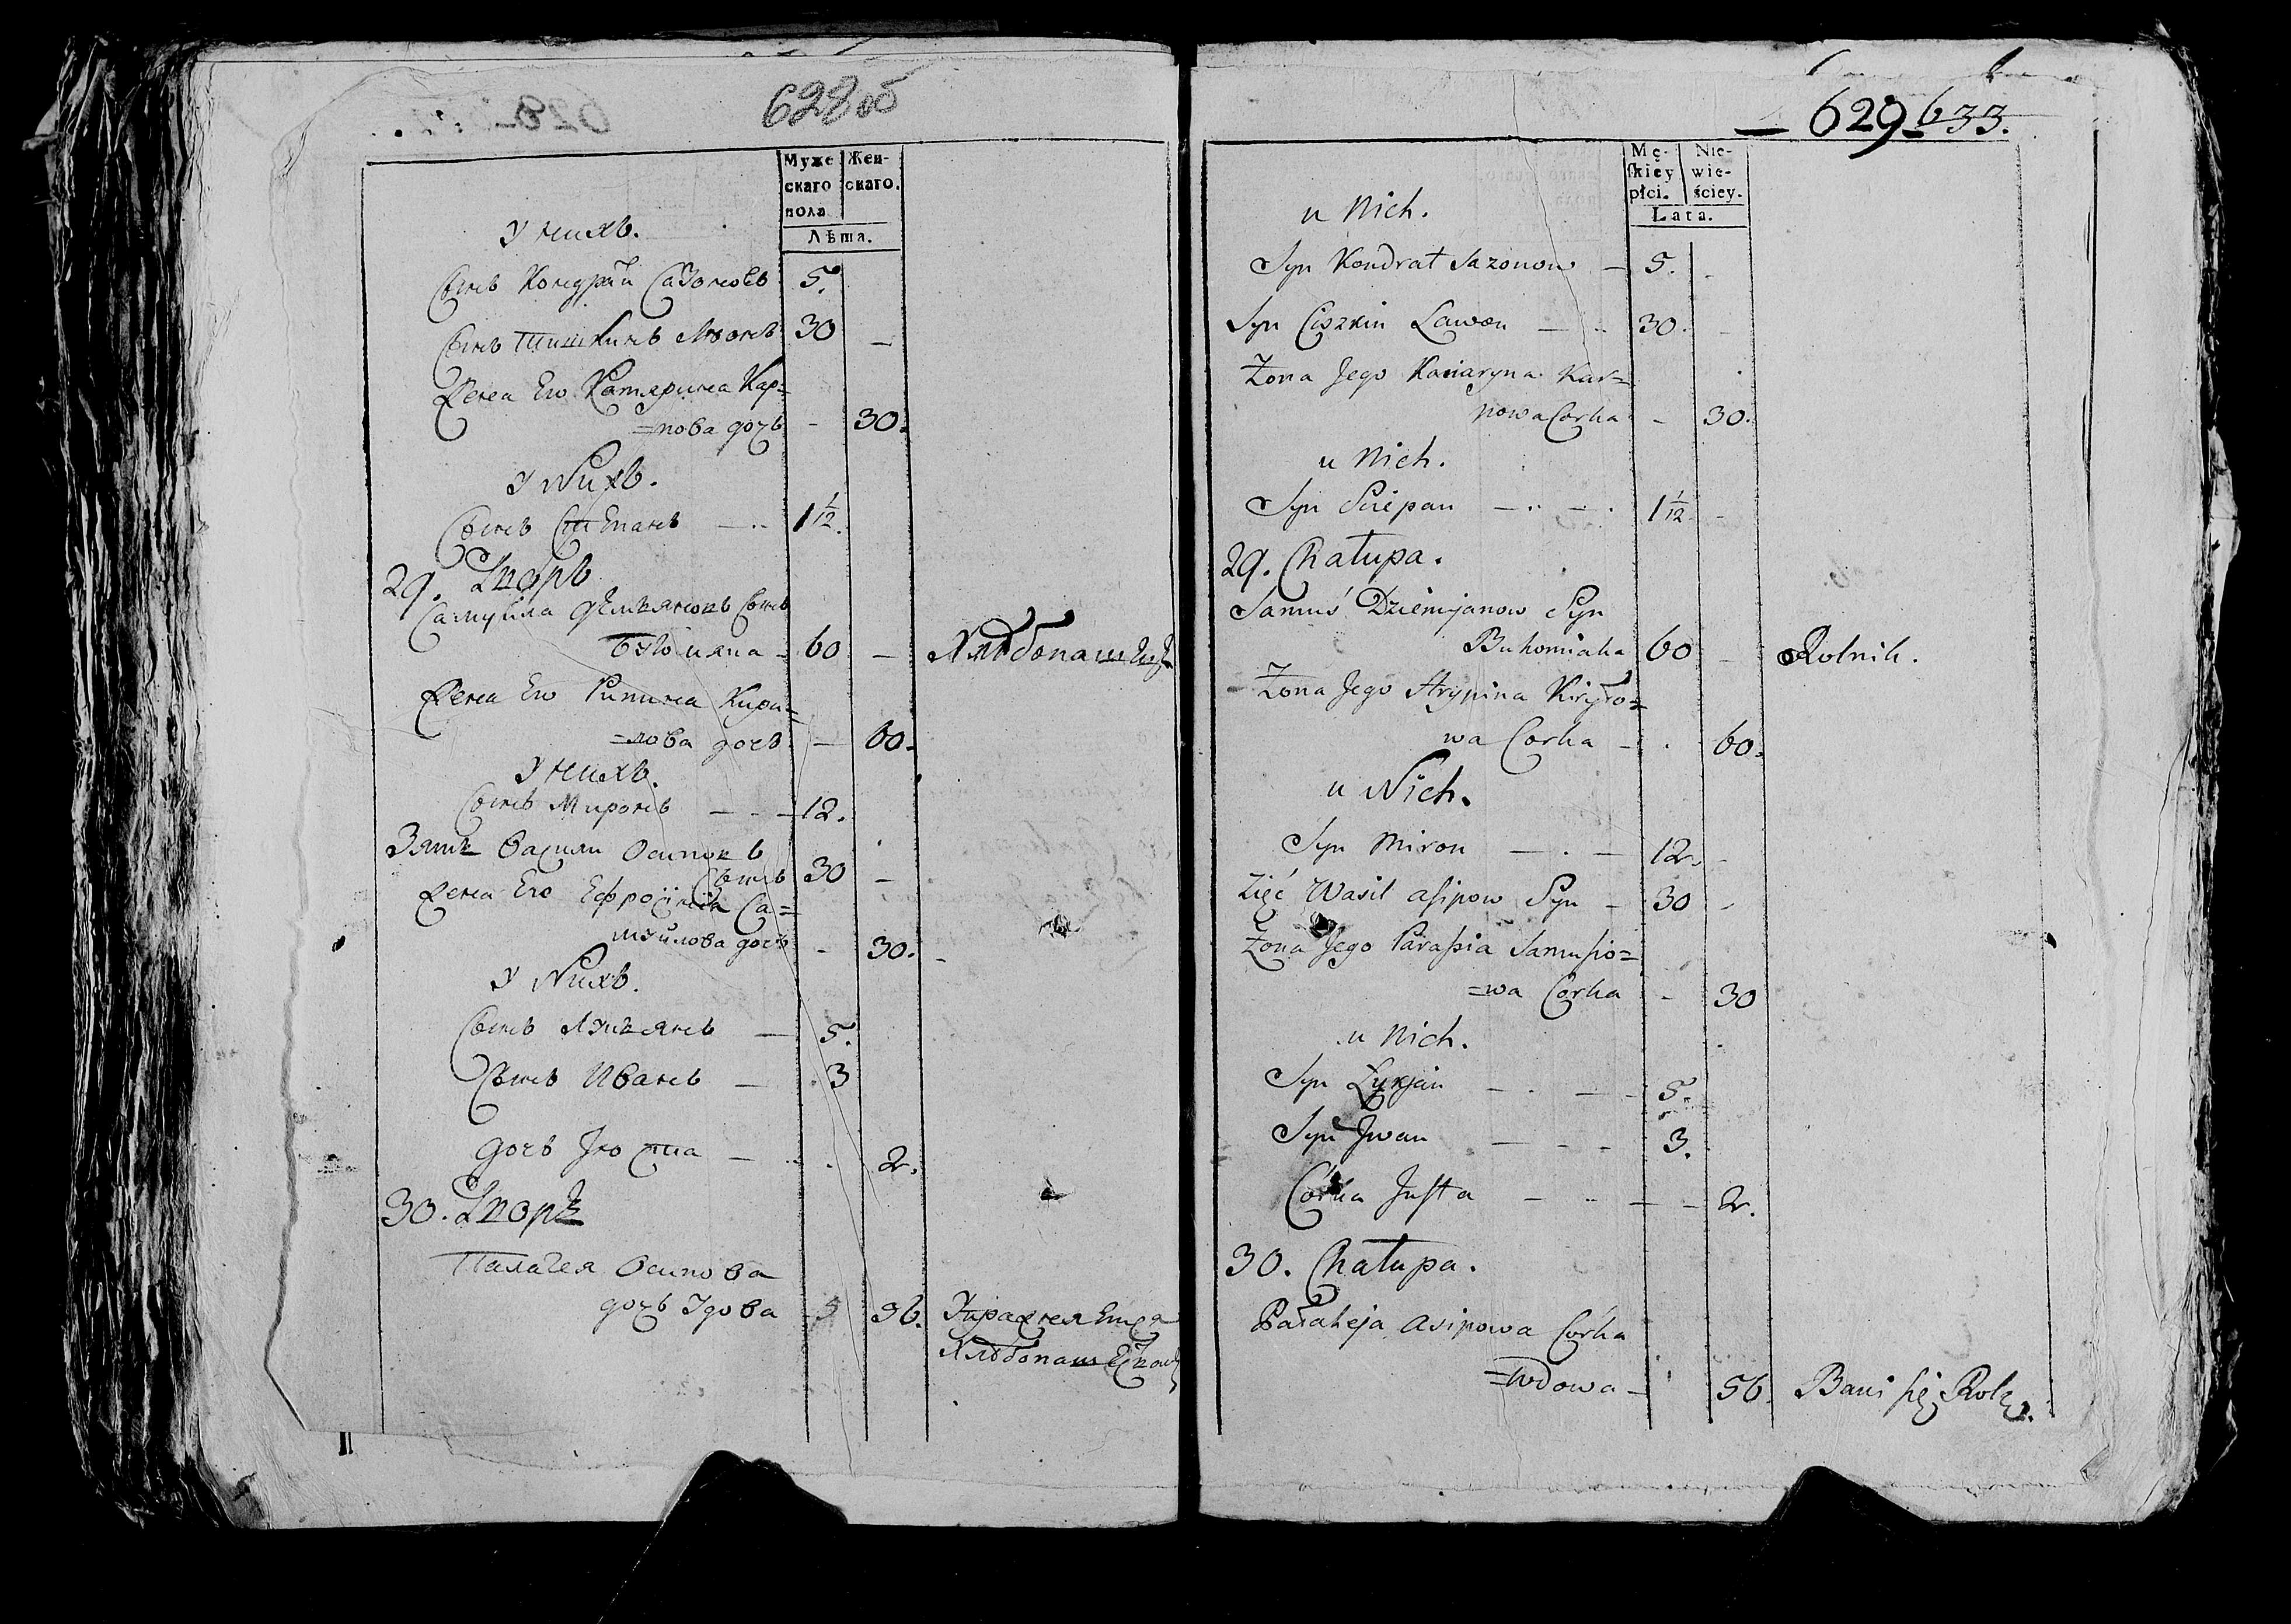 628 об
Муже
скаго
пола
Жен-
скаго.
Лѣта.
У нихъ.
Сынъ Кондрат Сазоновъ 5.
Сынъ Тишкинъ Лявонъ 30 –
Жена Ево Катярина Кар=
=пова дочь – 30.
У Нихъ.
Сынъ Степанъ – .. 1 1/12.
29. Дворъ
Самуйла Демьяновъ Сынъ
60 – Хлѣбопашецъ
Жена Ево Кири=
=лова дочь – 60.
У нихъ.
Сынъ Миронъ – – – 12.
Зять Васили Осиповъ
Сынъ 30 –
Жена Ево Ефросиния Са=
муйлова дочь – 30. –
У Нихъ.
Сынъ Лукьянъ – 5.
Сынъ Иванъ – 3
дочь Юста – 2.
30. Дворъ
Палагея Осипова
дочь Удова 56. Упражняеться
Хлѣбопашествомъ
629 633.
Mę-
skiey
płci.
Nie-
wie-
ściey.
Lata.
u Nich.
Syn Kondrat Sazonow – 5. –
Syn Ciszkin Lawon – .. 30. –
Żona Jego Kaciaryna Kar=
powa Corka – 30.
u Nich.
Syn Sciepan – .. – . 1 1/12 –
29. Chałupa.
Samuś Dziemjanow Syn
Bukomiaka 60 – Rolnik.
Żona Jego Ahrypina Kiryło=
wa Corka – . 60.
u Nich.
Syn Miron – . – 12. –
Zięć Wasil Asipow Syn – 30 –
Żona Jego Parasia Samusio=
=wa Córka – 30
u Nich.
Syn Łukjan – . – – 5.
Syn Jwan – – – 3.
Córka Justa – .. – – 2.
30. Chałupa.
Pałaheja Asipowa Córka
=Wdowa – 56. Bawi się Rolą.